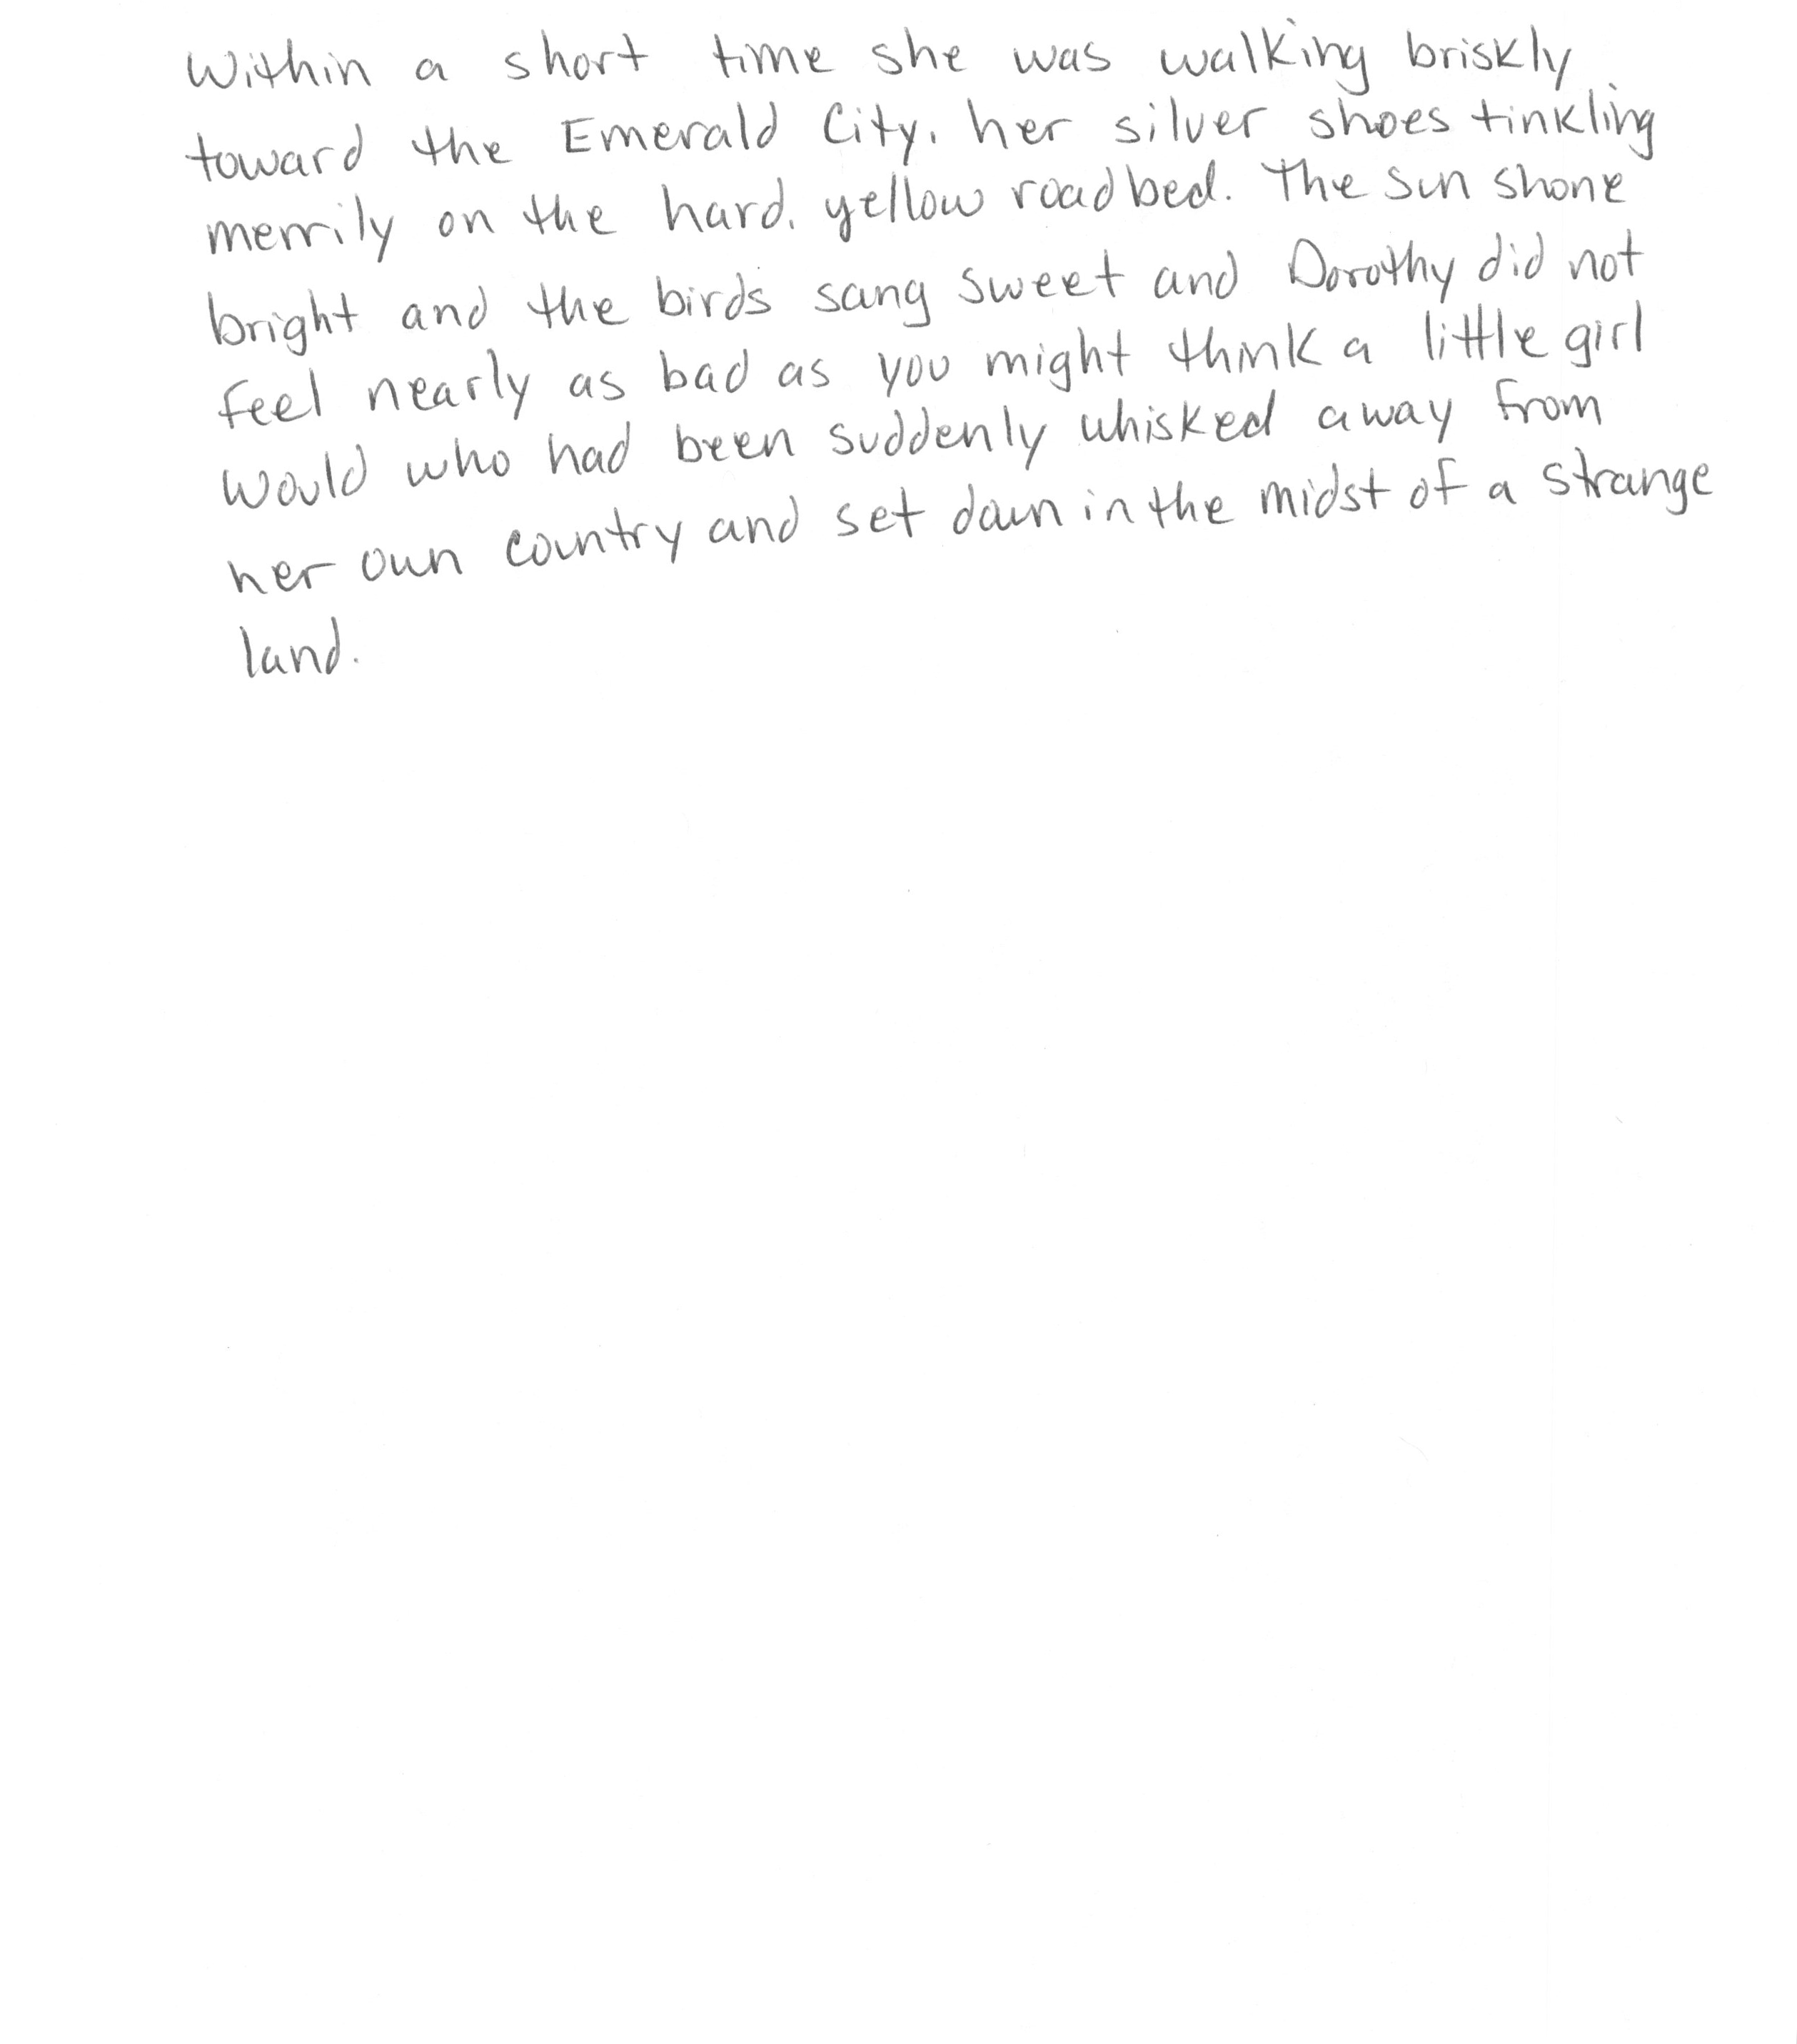 Within a short time she was walking briskly
toward the Emerald City, her silver shoes tinkling
merrily on the hard, yellow roadbed. The sun shone
bright and the birds sang sweet and Dorothy did not
feel nearly as bad as you might think a little girl
would who had been suddenly whisked away from
her own country and set down in the midst of a strange
land.